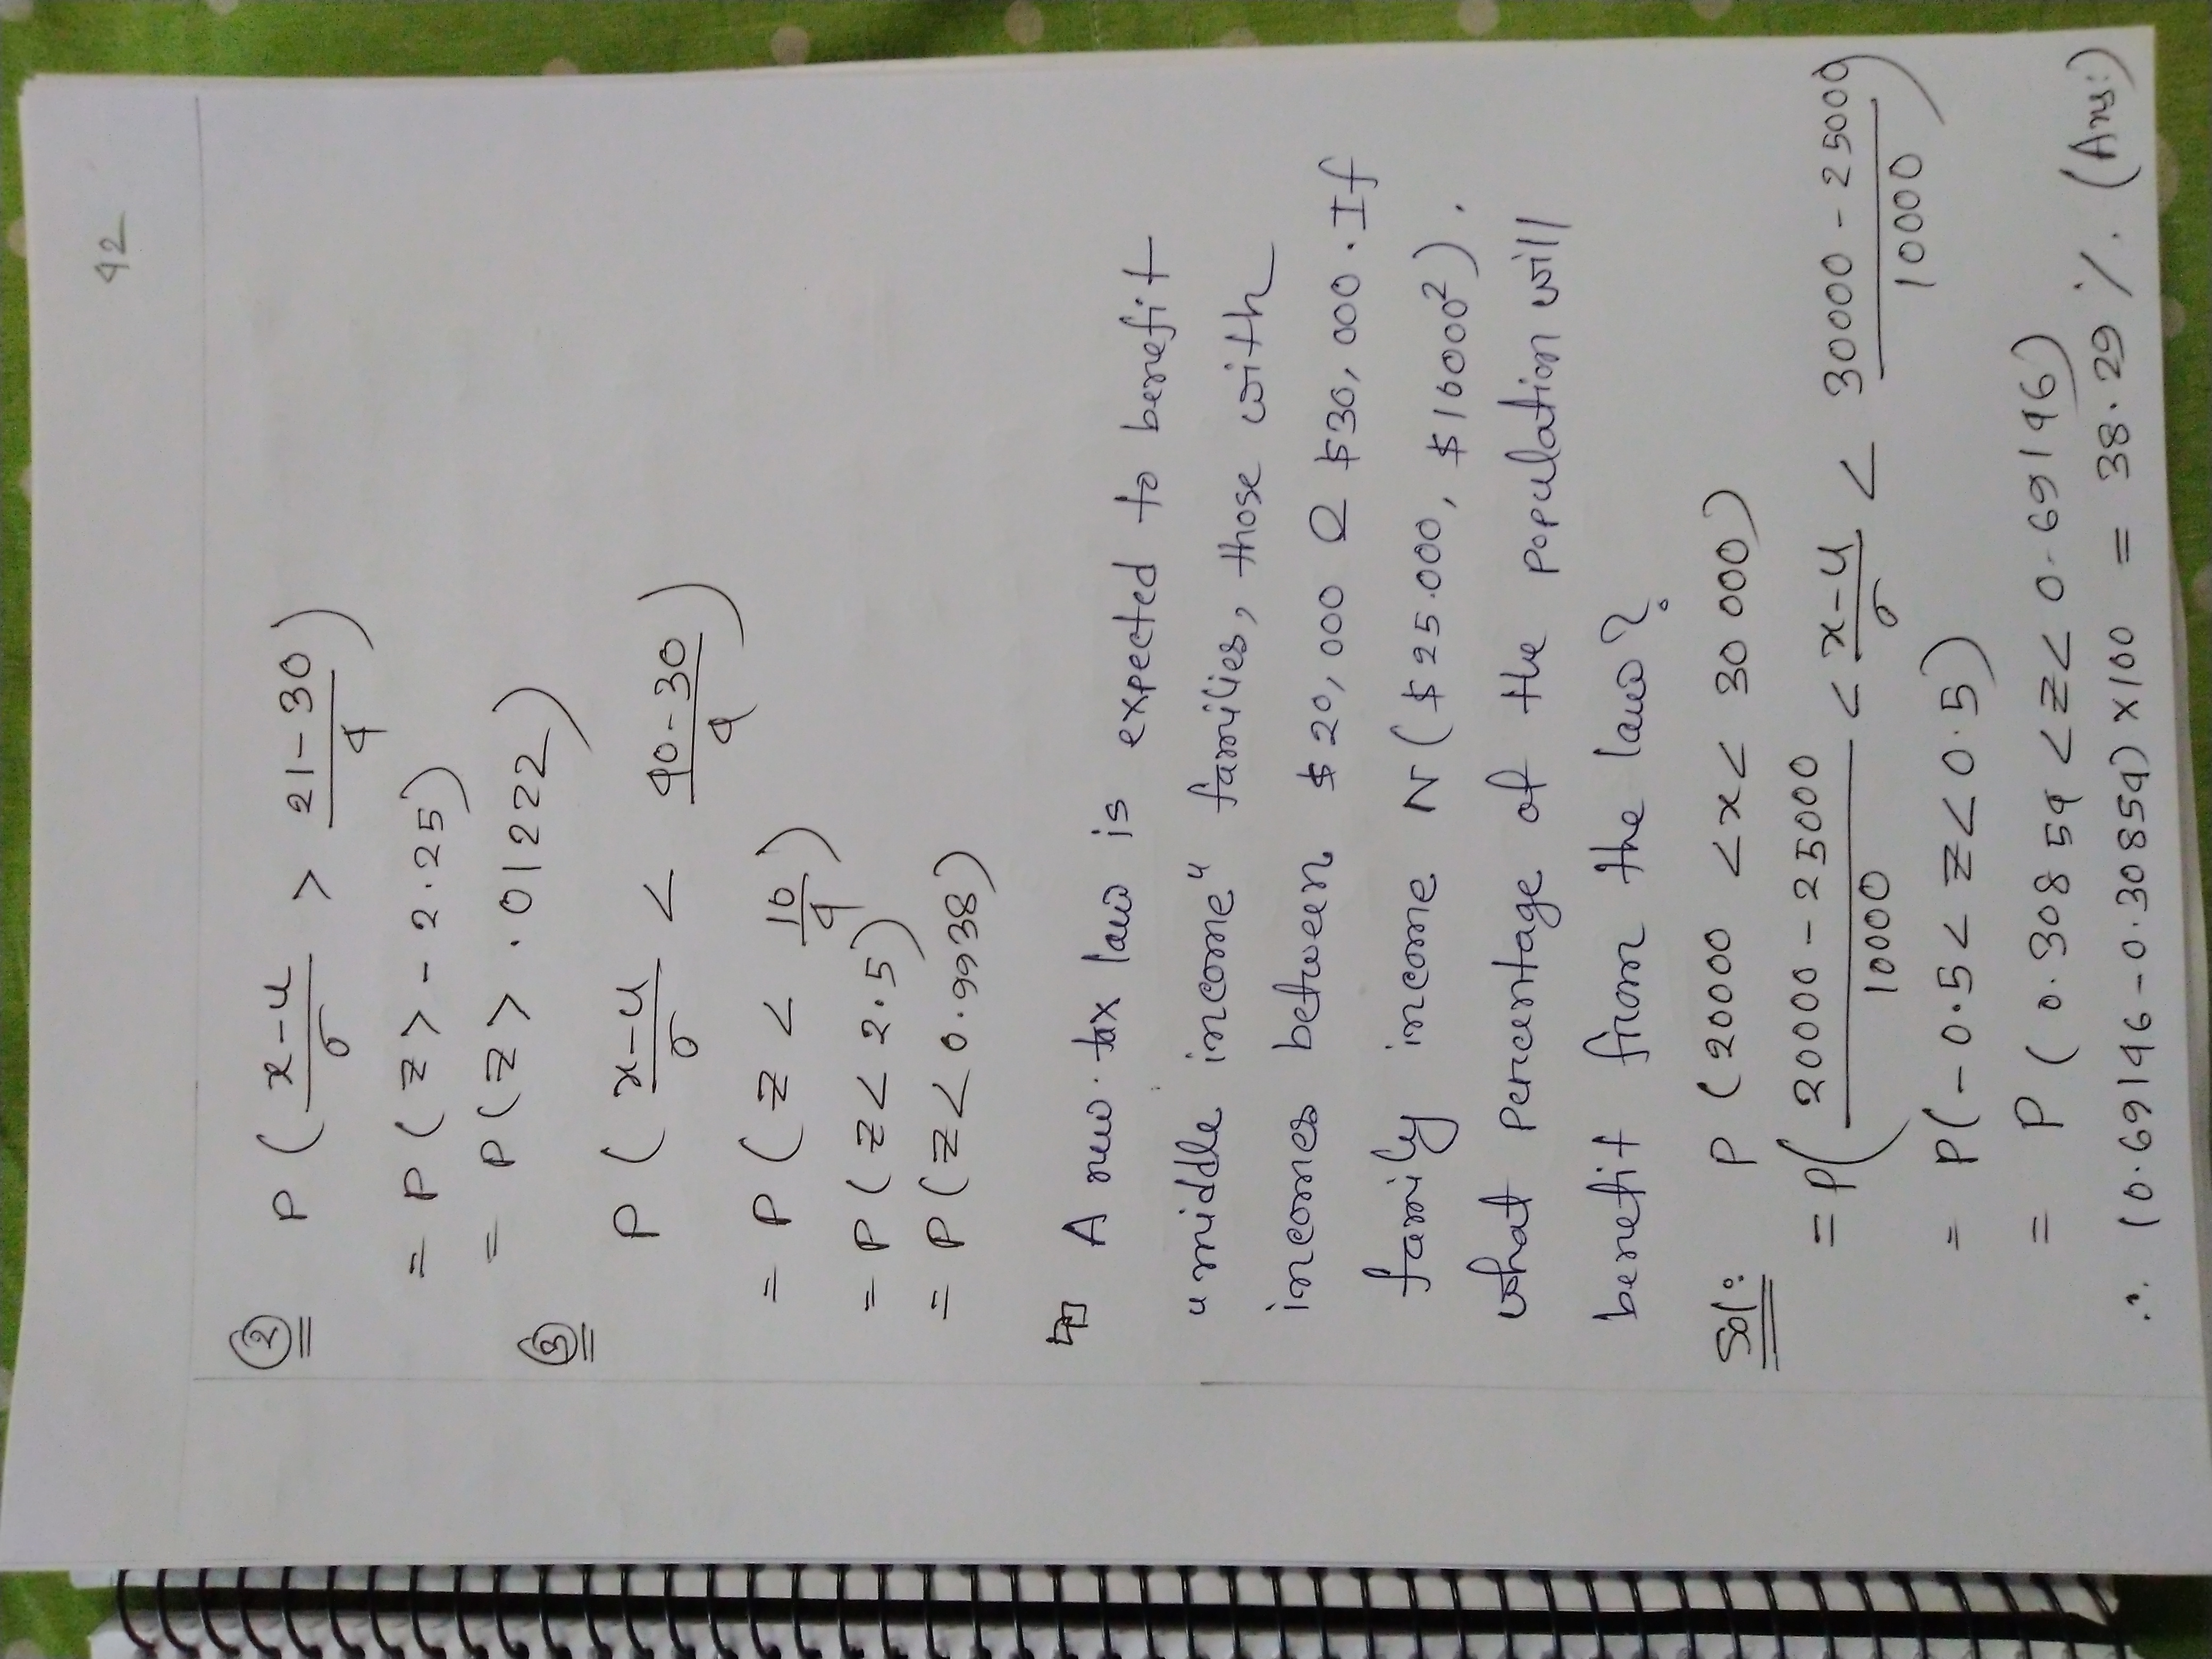 42
② P ( x-u/σ > 21-30/4 )
= P ( z > - 2.25)
= P ( z > .01222)
③ P ( x-u/σ < 40-30/4 )
= P ( z < 10/4 )
= P ( z < 2.5)
= P ( z < 0.9938)
A new tax law is expected to benefit
"middle income" families, those with
incomes between $20,000 & $30,000. If
family income N ($25.000, $10000²).
what percentage of the population will
benefit from the law?
Sol: P (20000 < x < 30000)
= P( 20000 - 25000/10000 < x-u/σ < 30000 - 25000/10000 )
= P(- 0.5 < z < 0.5)
= P ( 0.30854 < z < 0.69146)
∴ (0.69146-0.30854) x100 = 38.29%. (Ans:)